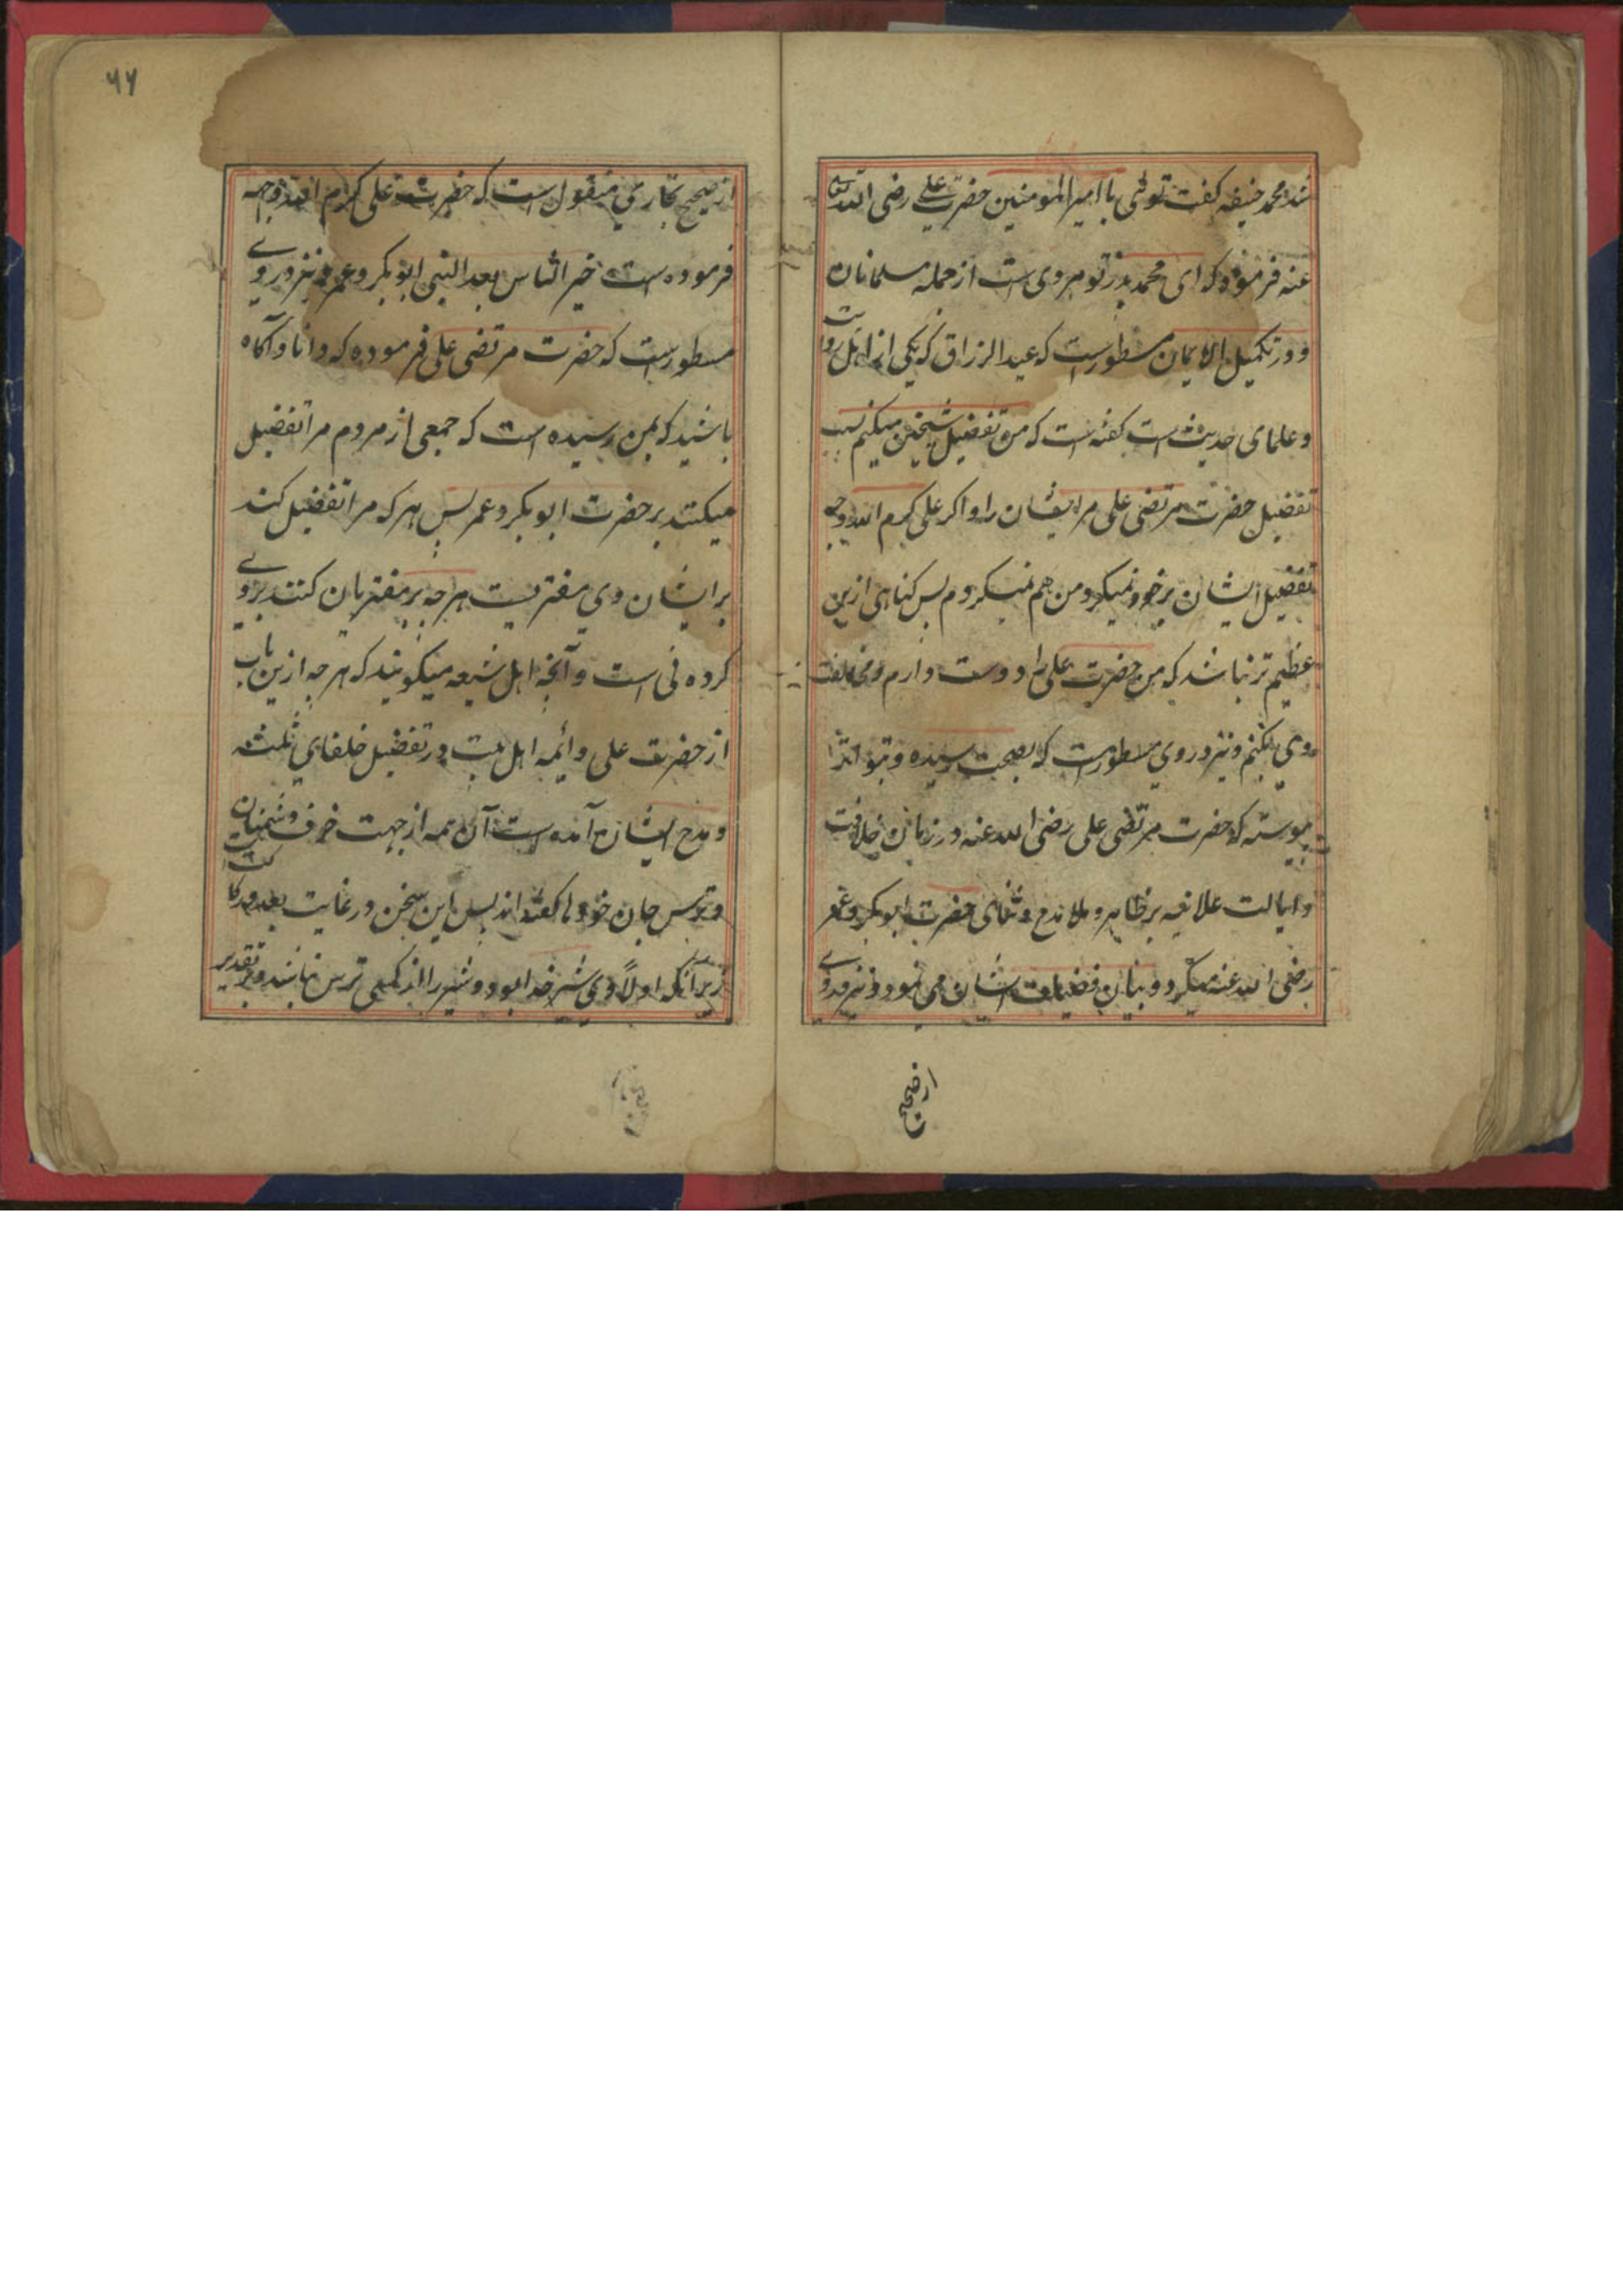 شد محمد حنیفه کفت توئی یا امیرالمومنین حضرت علی رضی الله تعالی
عنه فرموده که ای محمد پدر تو مردی است از جمله مسلمانان
و در تکمیل الایمان مسطورست که عبدالرزاق که یکی از اهل روایت
و علمای حدیث است کفته است که من تفضیل شیخین میکنم بسبب
تفضیل حضرت مرتضی علی مر ایشان را و اکر علی کرم الله وجهه
تفضیل ایشان بر خود نمیکرد من هم نمیکردم پس کناهی ازین
عظیم تر نباشد که من حضرت علی را دوست دارم و مخالفت
وی بکنم و نیز در وی مسطورست که بصحت رسیده و بتواتر
پیوسته که حضرت مرتضی علی رضی الله عنه در زمان خلافت
و ایالت علانیه بر ظاهر و ملا مدح و ثنای حضرت ابوبکر و عمر
رضی الله عنه میکرد و بیان فضیلت ایشان می نمود و نیز در وی
از صحیح
۶۶
از صحیح بخاری منقول است که حضرت علی کرم الله وجهه
فرموده است خیر الناس بعد النبی ابوبکر و عمر و نیز در وی
مسطورست که حضرت مرتضی علی فرموده که دانا و آکاه
باشید که بمن رسیده است که جمعی از مردم مرا تفضیل
میکنند بر حضرت ابوبکر و عمر پس هر که مرا تفضیل کند
بر ایشان وی مفتریست هرچه بر مفتریان کنند بر وی
کرده نی است و آنچه اهل شیعه میکویند که هرچه ازین باب
از حضرت علی و ائمه اهل بیت در تفضیل خلفای ثلثه
و مدح ایشان آمده است آن همه از جهت خوف دشمنان
و ترس جان خودها کفته اند پس این سخن در غایت بعد و رکاکت است
زیرانکه اولاً وی شیر خدا بود و شیر را از کسی ترس نباشد و بر تقدیر